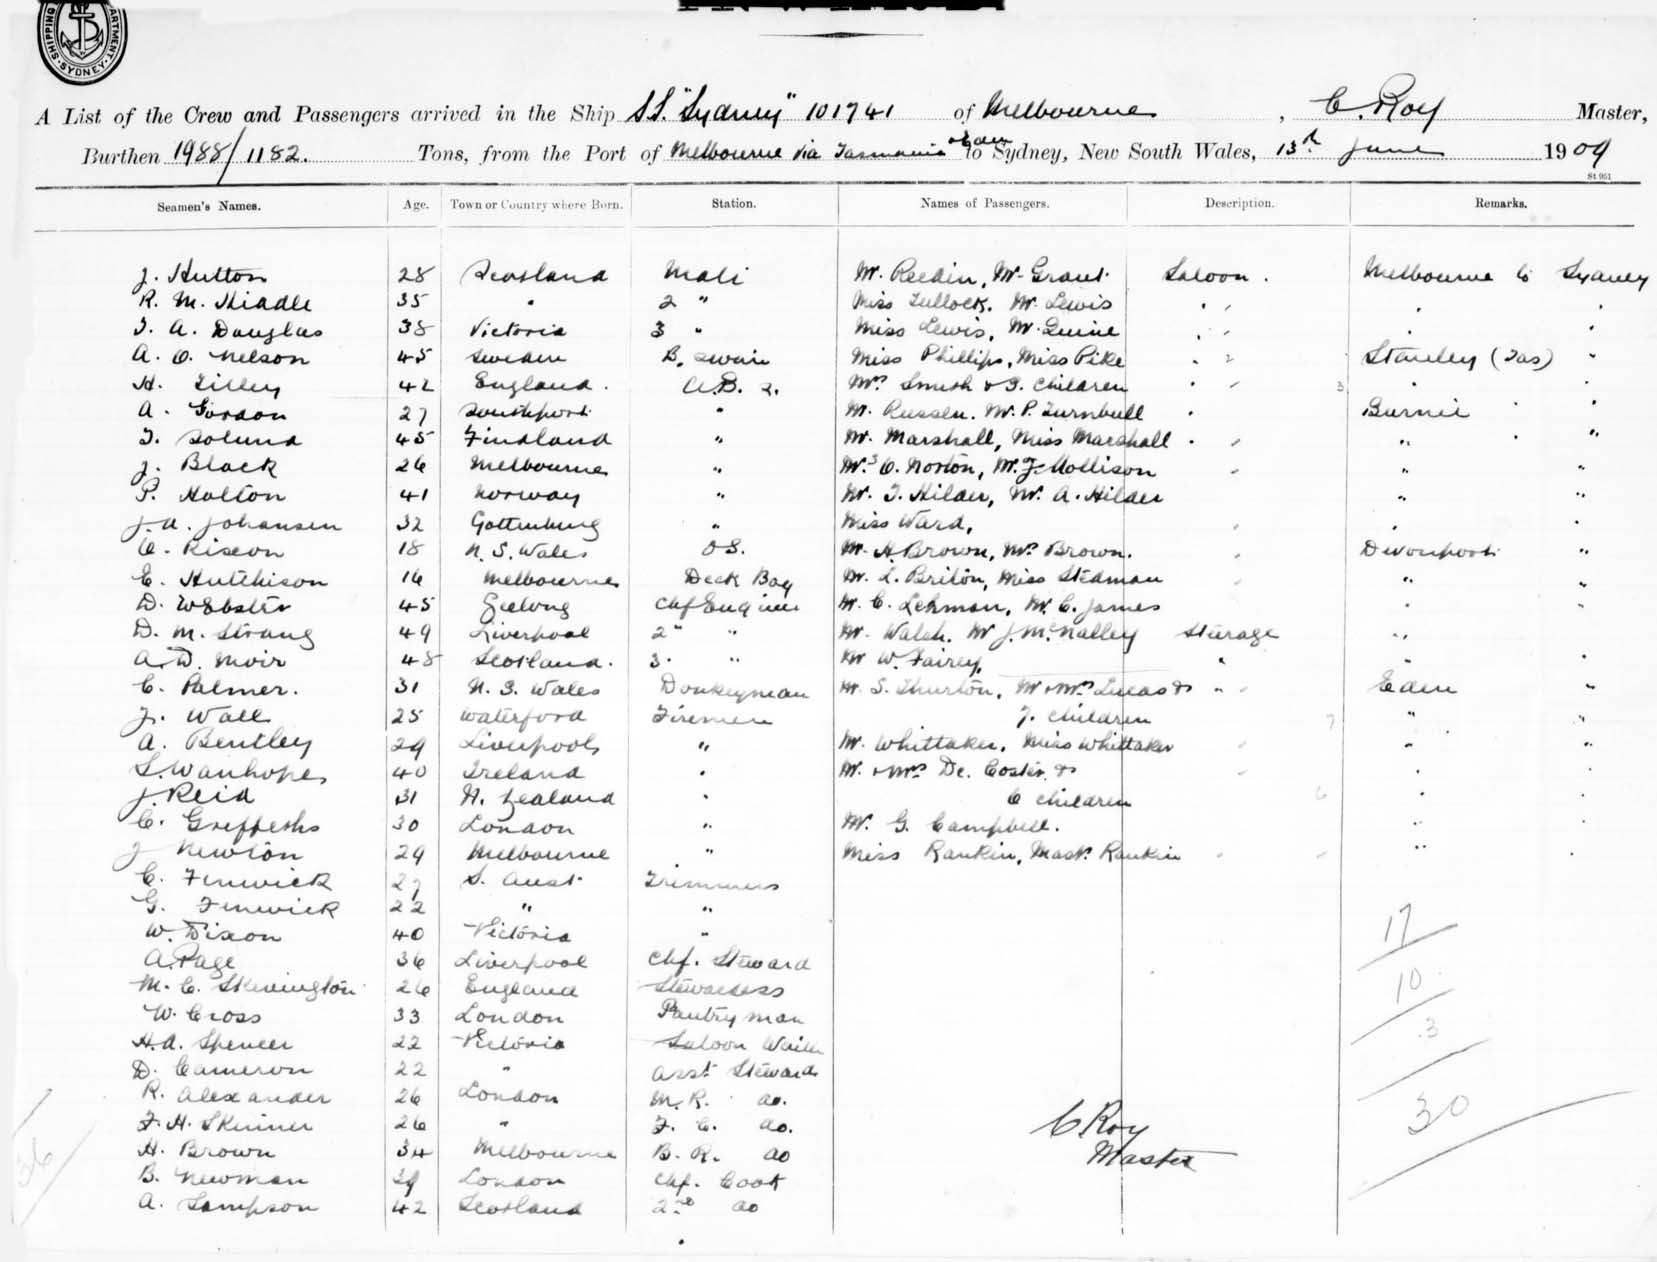 SHIPPING DEPARTMENT SYDNEY
A List of the Crew and Passengers arrived in the Ship S.S. "Sydney" 101741 of Melbourne, C. Roy Master,
Burthen 1988/1182. Tons, from the Port of Melbourne via Tasmania & Eden to Sydney, New South Wales, 13th June 1909
St 951
Seamen's Names. Age. Town or Country where Born. Station. Names of Passengers. Description. Remarks.
J. Hutton 28 Scotland Mate Mr. Reedin, Mr Grant Saloon. Melbourne to Sydney
R. M. Hiddle 35 " 2 " Miss Tullock, Mr. Lewis " " " "
T. A. Douglas 38 Victoria 3 " Miss Lewis, Mr. Quine " " " "
A. O. Nelson 45 Sweden B. Swain Miss Phillips, Miss Pike " " Stanley (Tas) "
H. Tilley 42 England. A.B. 2. Mrs Smith & 3. Children " " 3 " "
A. Gordon 27 Southport " Mr. Russell. Mr. P. Turnbull " Burnie " "
T. Solund 45 Findland " Mr. Marshall, Miss Marshall " " " " "
J. Black 26 Melbourne " Mrs O. Norton, Mr. J. Mollison " " "
P. Holton 41 Norway " Mr. T. Hilder, Mr. A. Hilder " "
J. A. Johansen 32 Gottenburg " Miss Ward, " " "
C. Rixon 18 N. S. Wales O.S. Mr. H Brown, Mrs Brown. " Devonport "
E. Hutchison 16 Melbourne Deck Boy Mr. L. Briton, Miss Stedman " " "
D. Webster 45 Geelong Chf Engineer Mr. C. Lehman, Mr. C. James " "
D. M. Strang 49 Liverpool 2" " Mr. Walsh, Mr J. McNalley Sturage " "
A. D. Moir 48 Scotland. 3. " Mr W. Fairey, " " "
C. Palmer. 31 N. S. Wales Donkeyman Mr. S. Thurton, Mr & Mrs Lucas & " " Eden "
J. Wall 25 Waterford Firemen 7. Children 7 " "
A. Bentley 29 Liverpool " Mr. Whittaker, Miss Whittaker " " "
S. Wanhope 40 Ireland " Mr. & Mrs De. Coster & " " "
J. Reid 31 N. Zealand " 6 children 6 " "
C. Griffiths 30 London " Mr. G. Campbell. " "
J Newton 29 Melbourne " Miss Rankin, Mast. Rankin " " " "
C. Finwick 27 S. Aust. Trimmers
G. Finwick 22 " "
W. Dixon 40 Victoria " 17
A. Page 36 Liverpool Chf. Steward
M. C. Skevington 26 England Stewardess 10
W. Cross 33 London Pantry man 3
H. A. Spencer 22 Victoria Saloon Waiter
D. Cameron 22 " Asst. Steward
R. Alexander 26 London M. R. do. 30
F. H. Skinner 26 " F. C. do. C Roy
H. Brown 34 Melbourne B. R. do Master
B. Newman 39 London Chf. Cook
A. Sampson 42 Scotland 2nd do
36